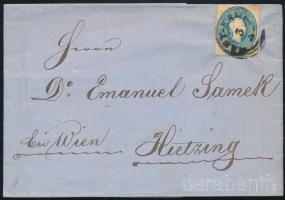 Herrn
Dr. Emanuel Samek
bei Wien
Hietzing
darabanth